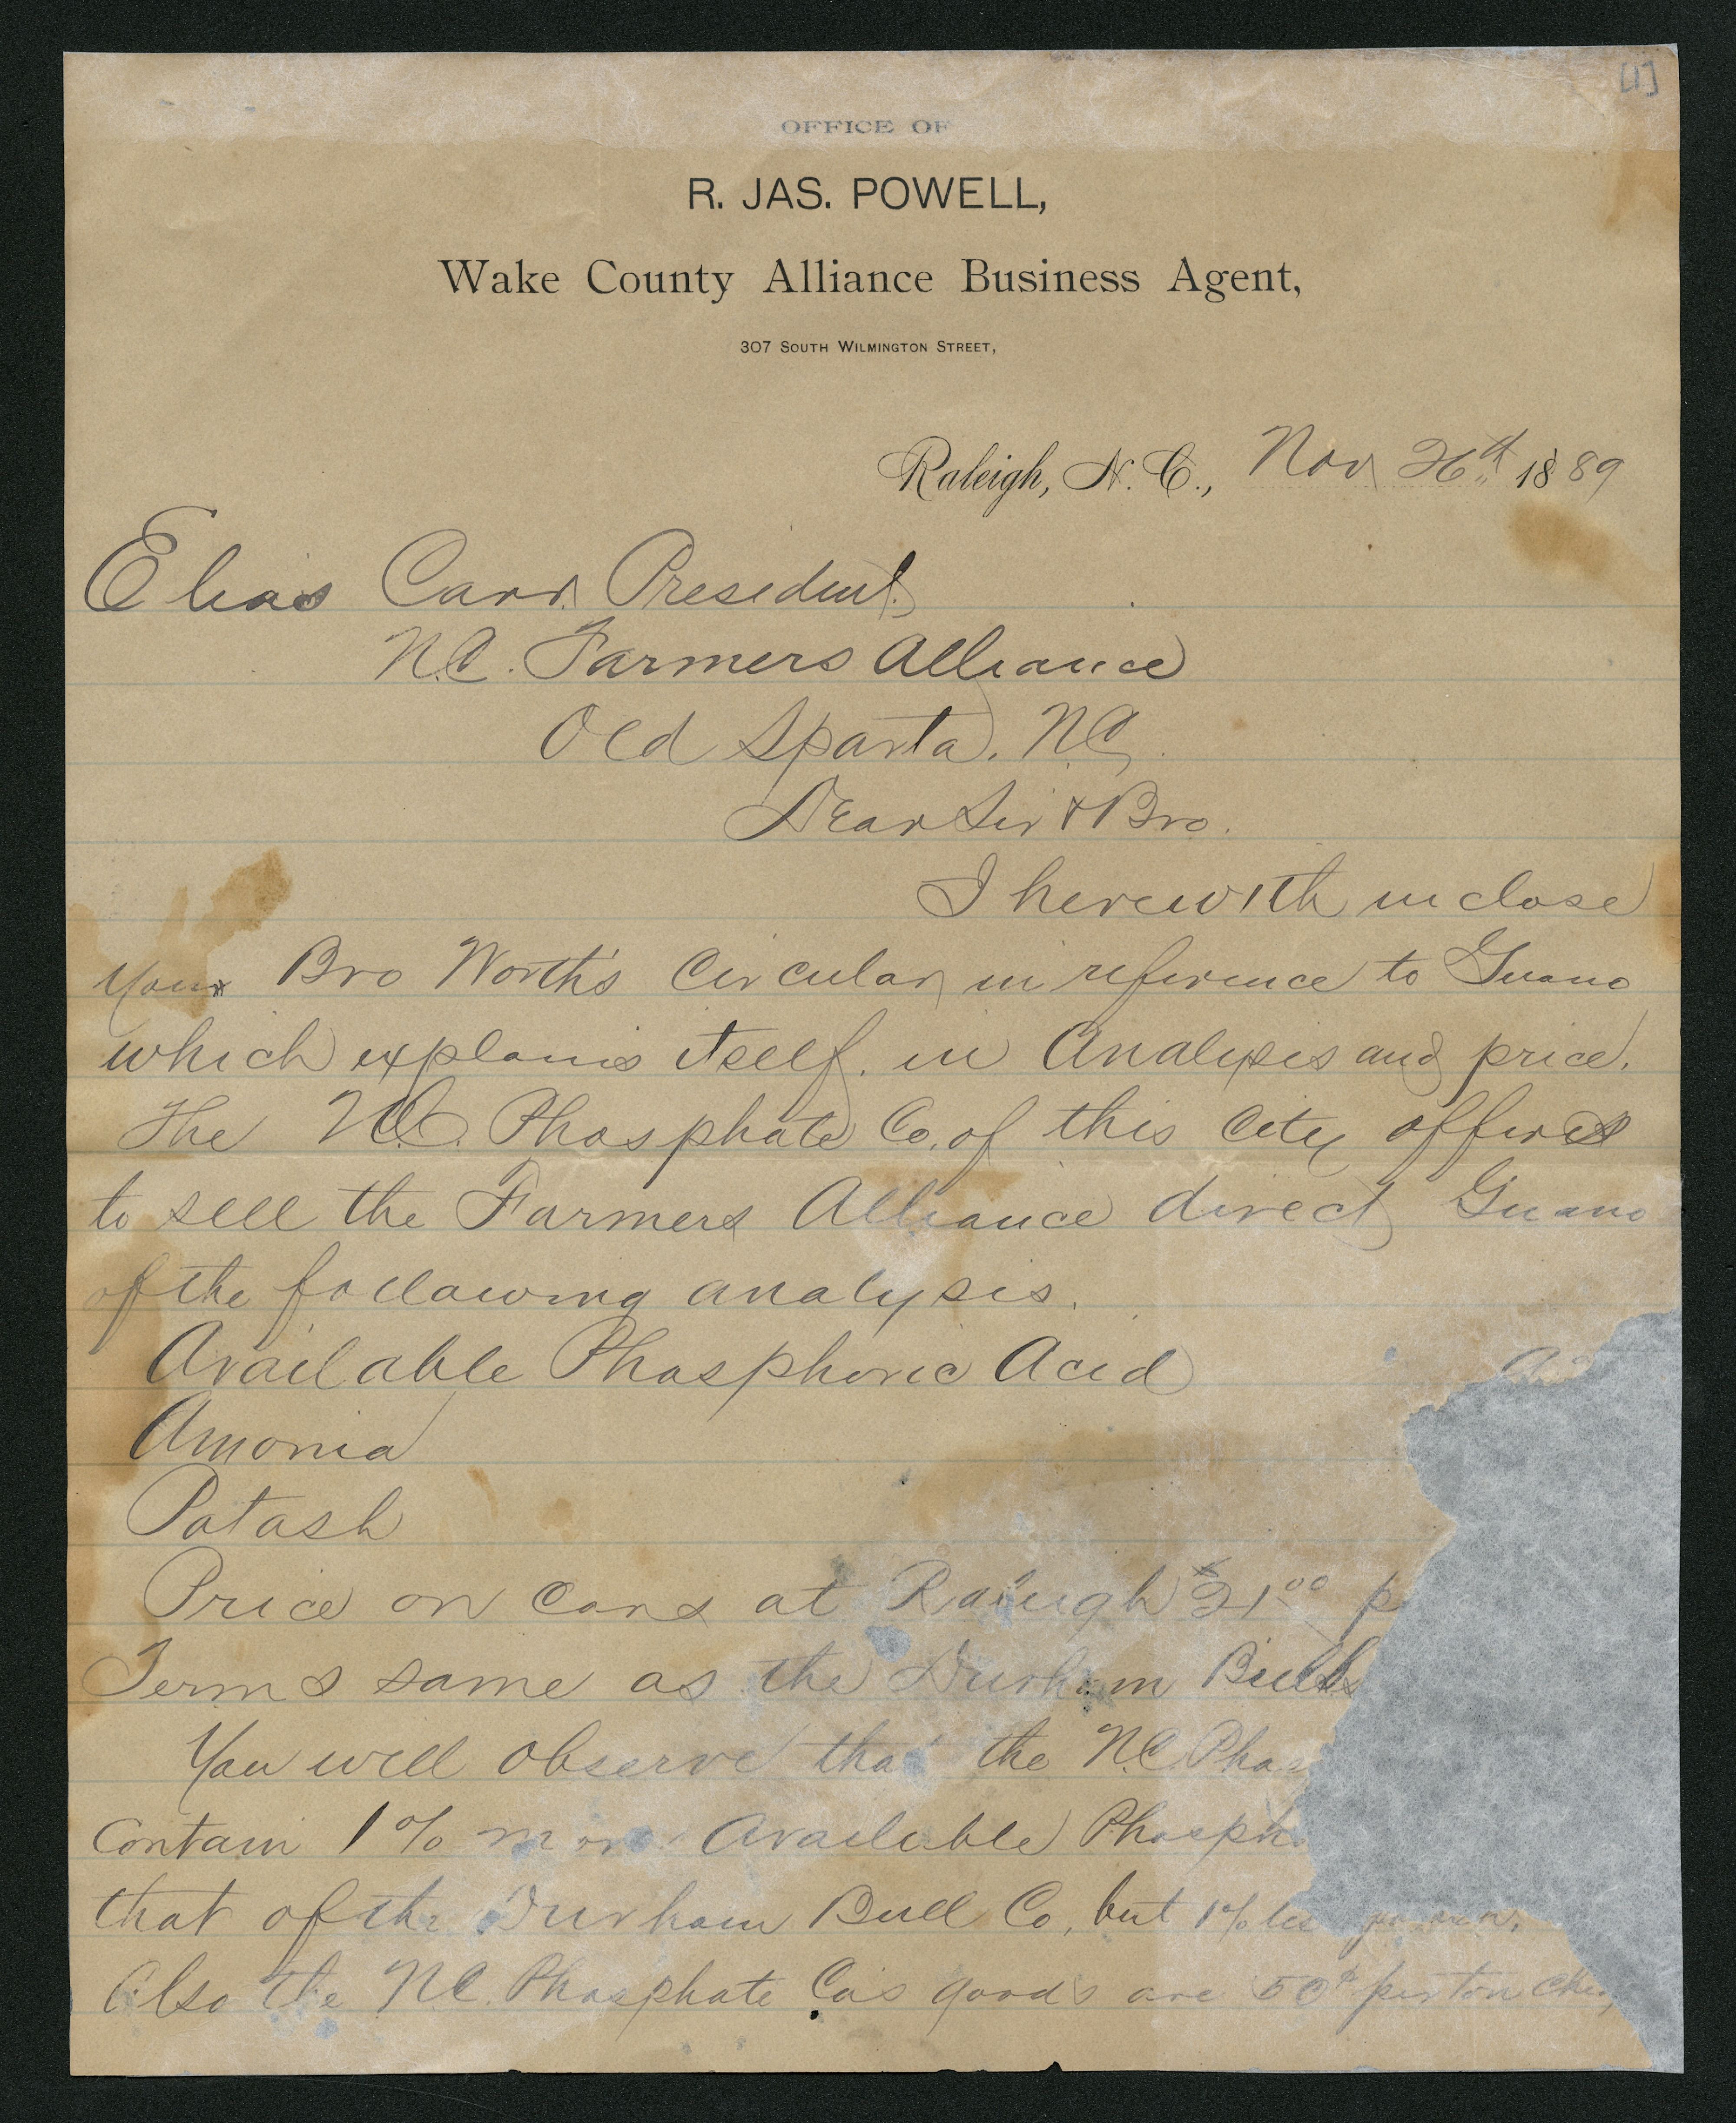 [1]
OFFICE OF
R. JAS. POWELL,
Wake County Alliance Business Agent,
307 SOUTH WILMINGTON STREET,
Raleigh, N. C., Nov 26th 1889
Elias Carr. President.
N.C. Farmers Alliance
Old Sparta. N.C.
Dear Sir & Bro.
I herewith inclose
your Bro Worth's Circular in reference to Guano
which explains itself. in Analysis and price.
The N.C. Phosphate Co. of this City offires
to sell the Farmers Alliance direct Guano
of the following analysis.
Available Phosphoric Acid
Amonia
Potash
Price on Cars at Raleigh $21.00 p
Terms same as the Durham Bull
You will observe that the N.C. Phos
Contain 1% more Available Phosph
that of the Durham Bull Co, but 1% les
Also the N.C. Phosphate Co's goods are 50c per ton